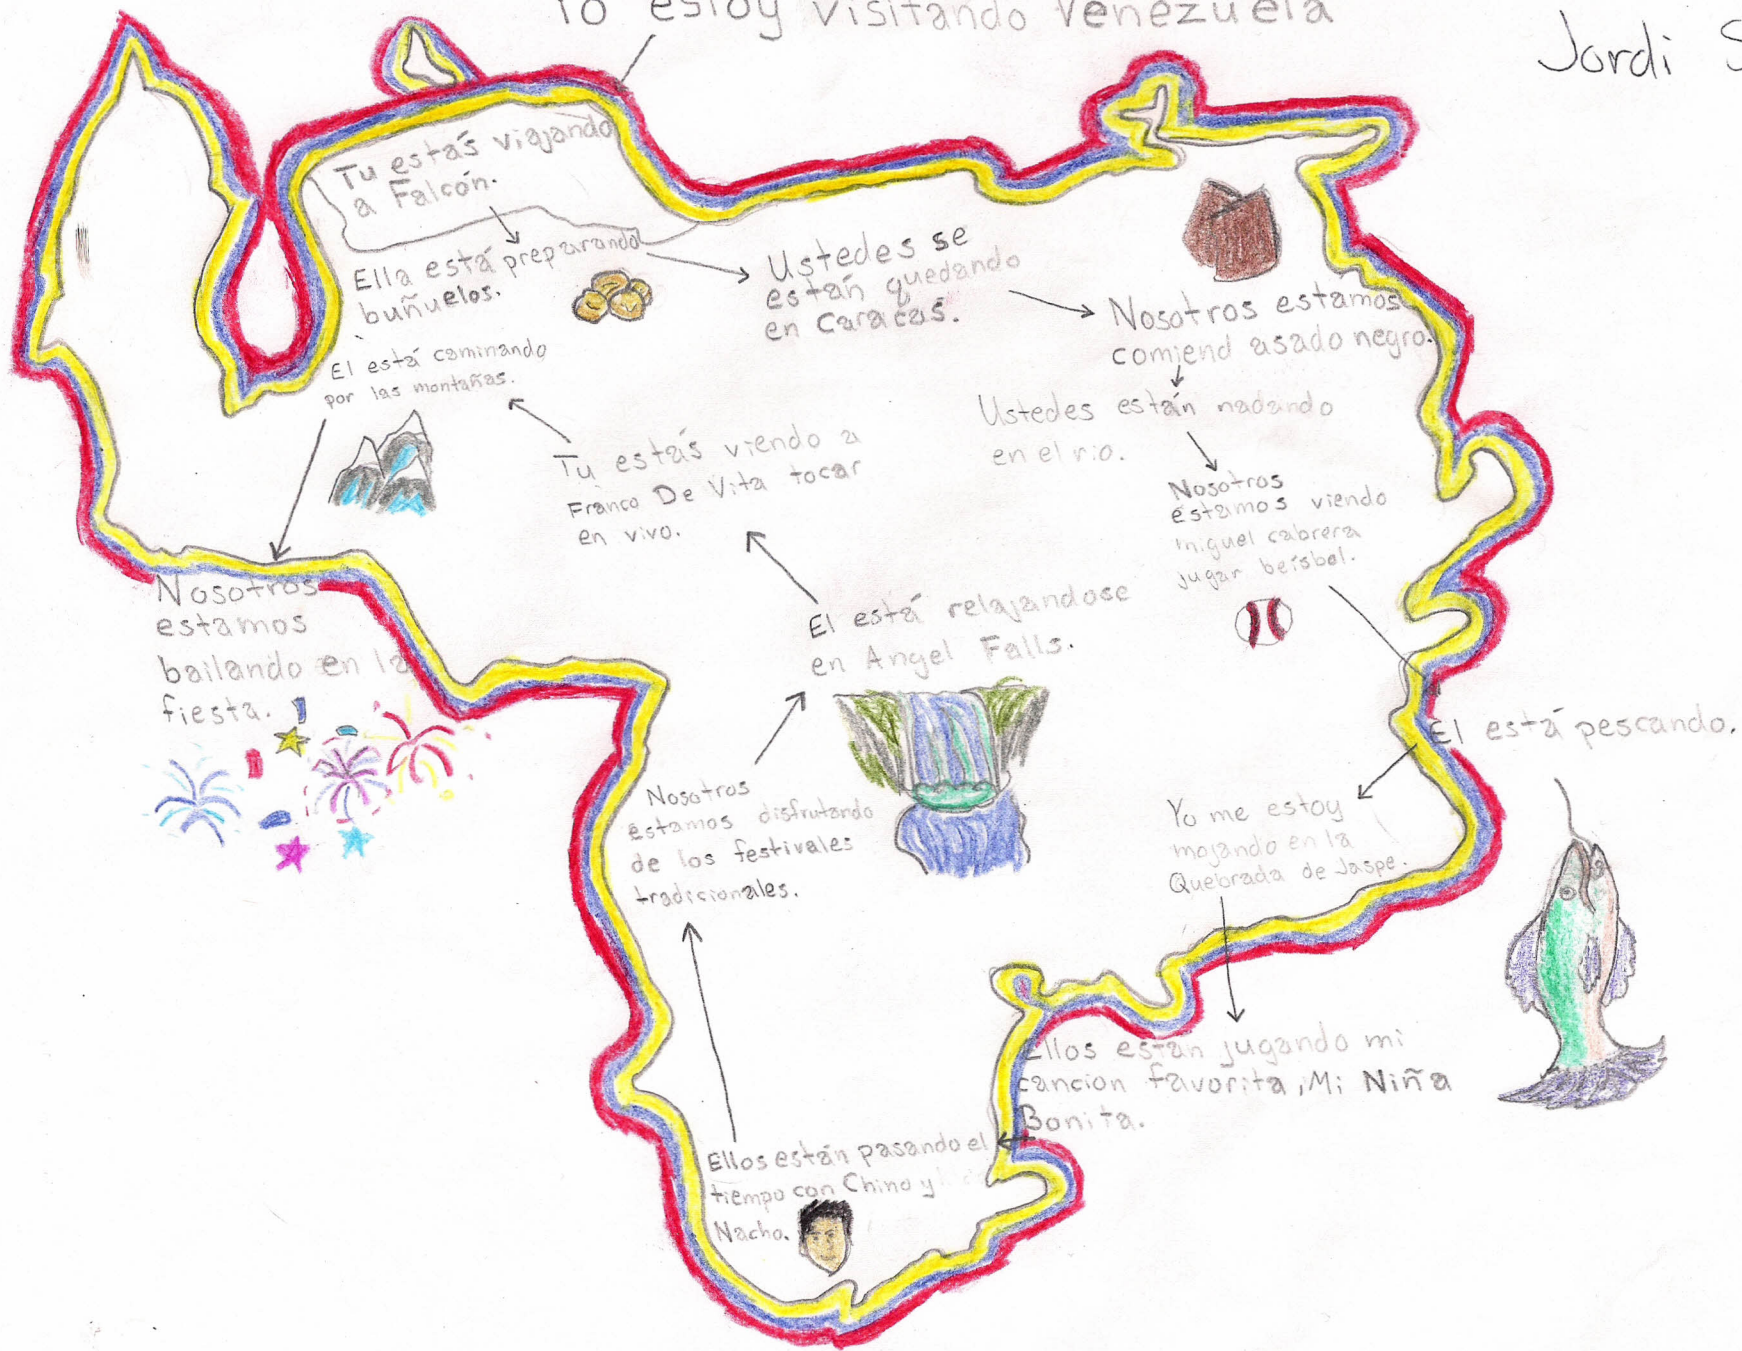 Yo estoy visitando Venezuela
Jordi S
Tu estás viajando
a Falcón.
Ella está preparando
buñuelos.
Ustedes se
están quedando
en Caracas.
Nosotros estamos
comiend asado negro.
Ustedes están nadando
en el rio.
Nosotros
estamos viendo
miguel cabrera
jugar beísbol.
El está pescando.
Yo me estoy
mojando en la
Quebrada de Jaspe.
Ellos estan jugando mi
cancion favorita, Mi Niña
Bonita.
Ellos están pasando el
tiempo con Chino y
Nacho.
Nosotros
estamos disfrutando
de los festivales
tradicionales.
El está relajandose
en Angel Falls.
Tu estás viendo a
Franco De Vita tocar
en vivo.
El está caminando
por las montañas.
Nosotros
estamos
bailando en la
fiesta.